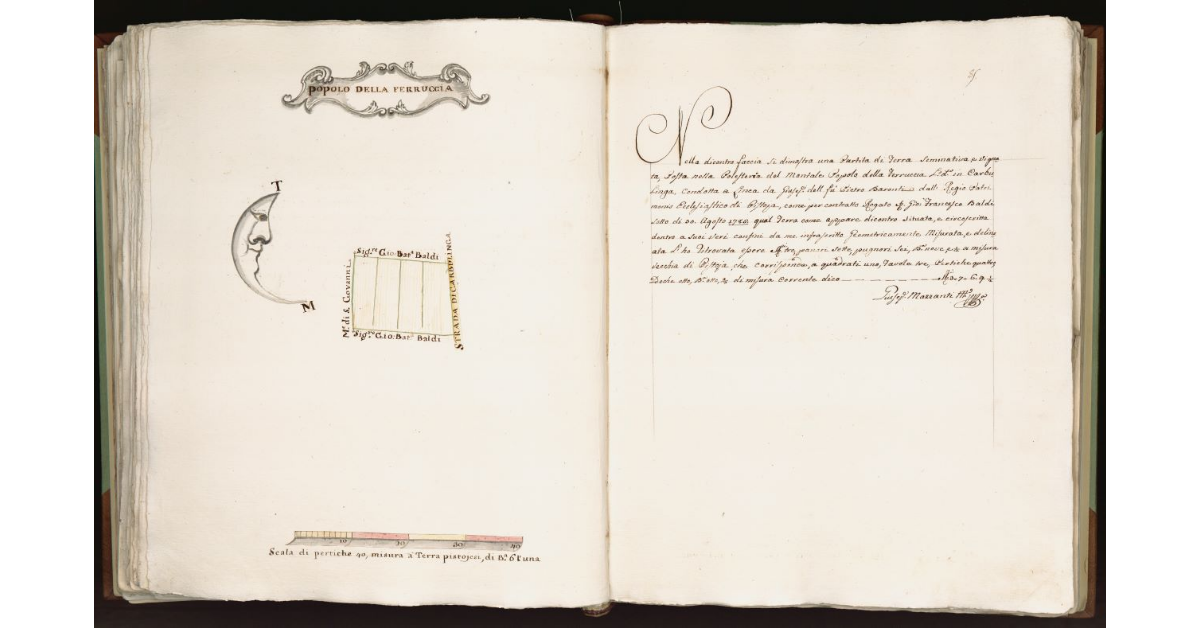 POPOLO DELLA FERRUCCIA
T
M
Sig.re Gio: Bat.a Baldi
M.e di S. Giovanni
STRADA DI CARBOLINGA
Sig.re Gio: Bat.a Baldi
10 20 30 40
Scala di pertiche 40, misura a' Terra pistojesi, di B.a 6 l'una
Nella dicontro faccia si dimostra una Partita di Terra Seminativa, e Vigna
ta, Posta nella Potesteria del Montale Popolo della Ferruccia L.d. in Carbo
linga, Condotta a Linea da Giusep. dell fù Pietro Barenti dall Regio Patri
monio Eclesiastico di Pistoja, come per contratto Rogato Gio: Francesco Baldi
sotto di 20. Agosto qual Terra come appare dicontro situata, e circoscritta
dentro a suoi veri confini da me infrascritto Geometricamente Misurata, e delin
eata L'ho Ritrovata essere panieri sette, pugnori sei, B. nove e a misura
vecchia di Pistoja che corrispondano, a quadrati uno, Tavole tre, Pertiche quattro
Deche otto, B. otto, di misura Corrente dico 7. 6. 9
Giusep. Mazzanti